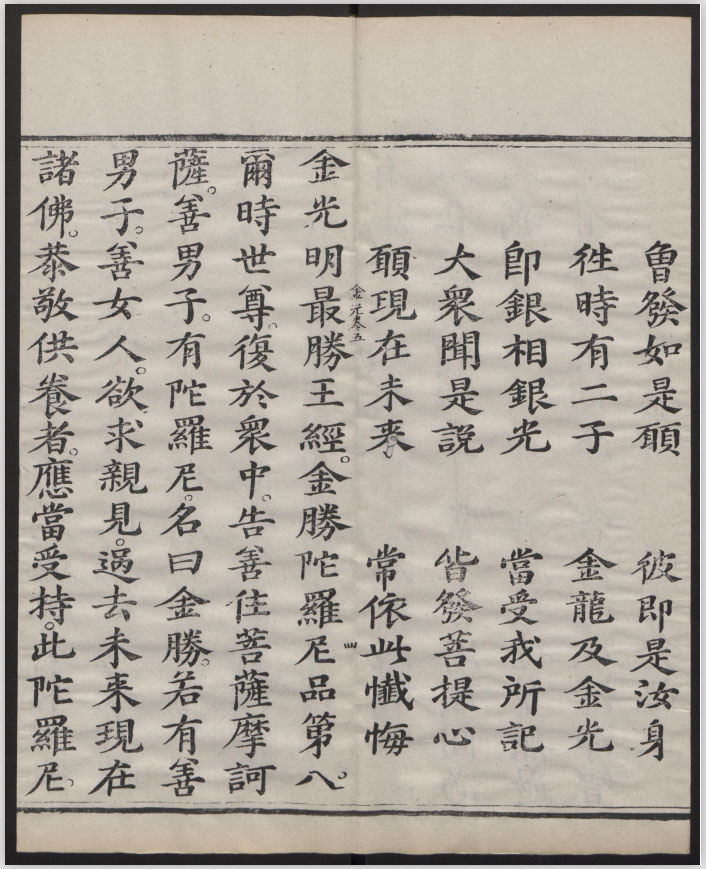 曾發如是願　彼即是汝身
徃時有二子　金龍及金光
即銀相銀光　當受我所記
大眾聞是說　皆發菩提心
願現在未來　常依此懺悔
金光卷五
四
金光明最勝王經。金勝陀羅尼品第八。
爾時世尊。復於眾中。告善住菩薩摩訶
薩。善男子。有陀羅尼。名曰金勝。若有善
男子。善女人。欲求親見。過去未來現在
諸佛。恭敬供養者。應當受持。此陀羅尼。